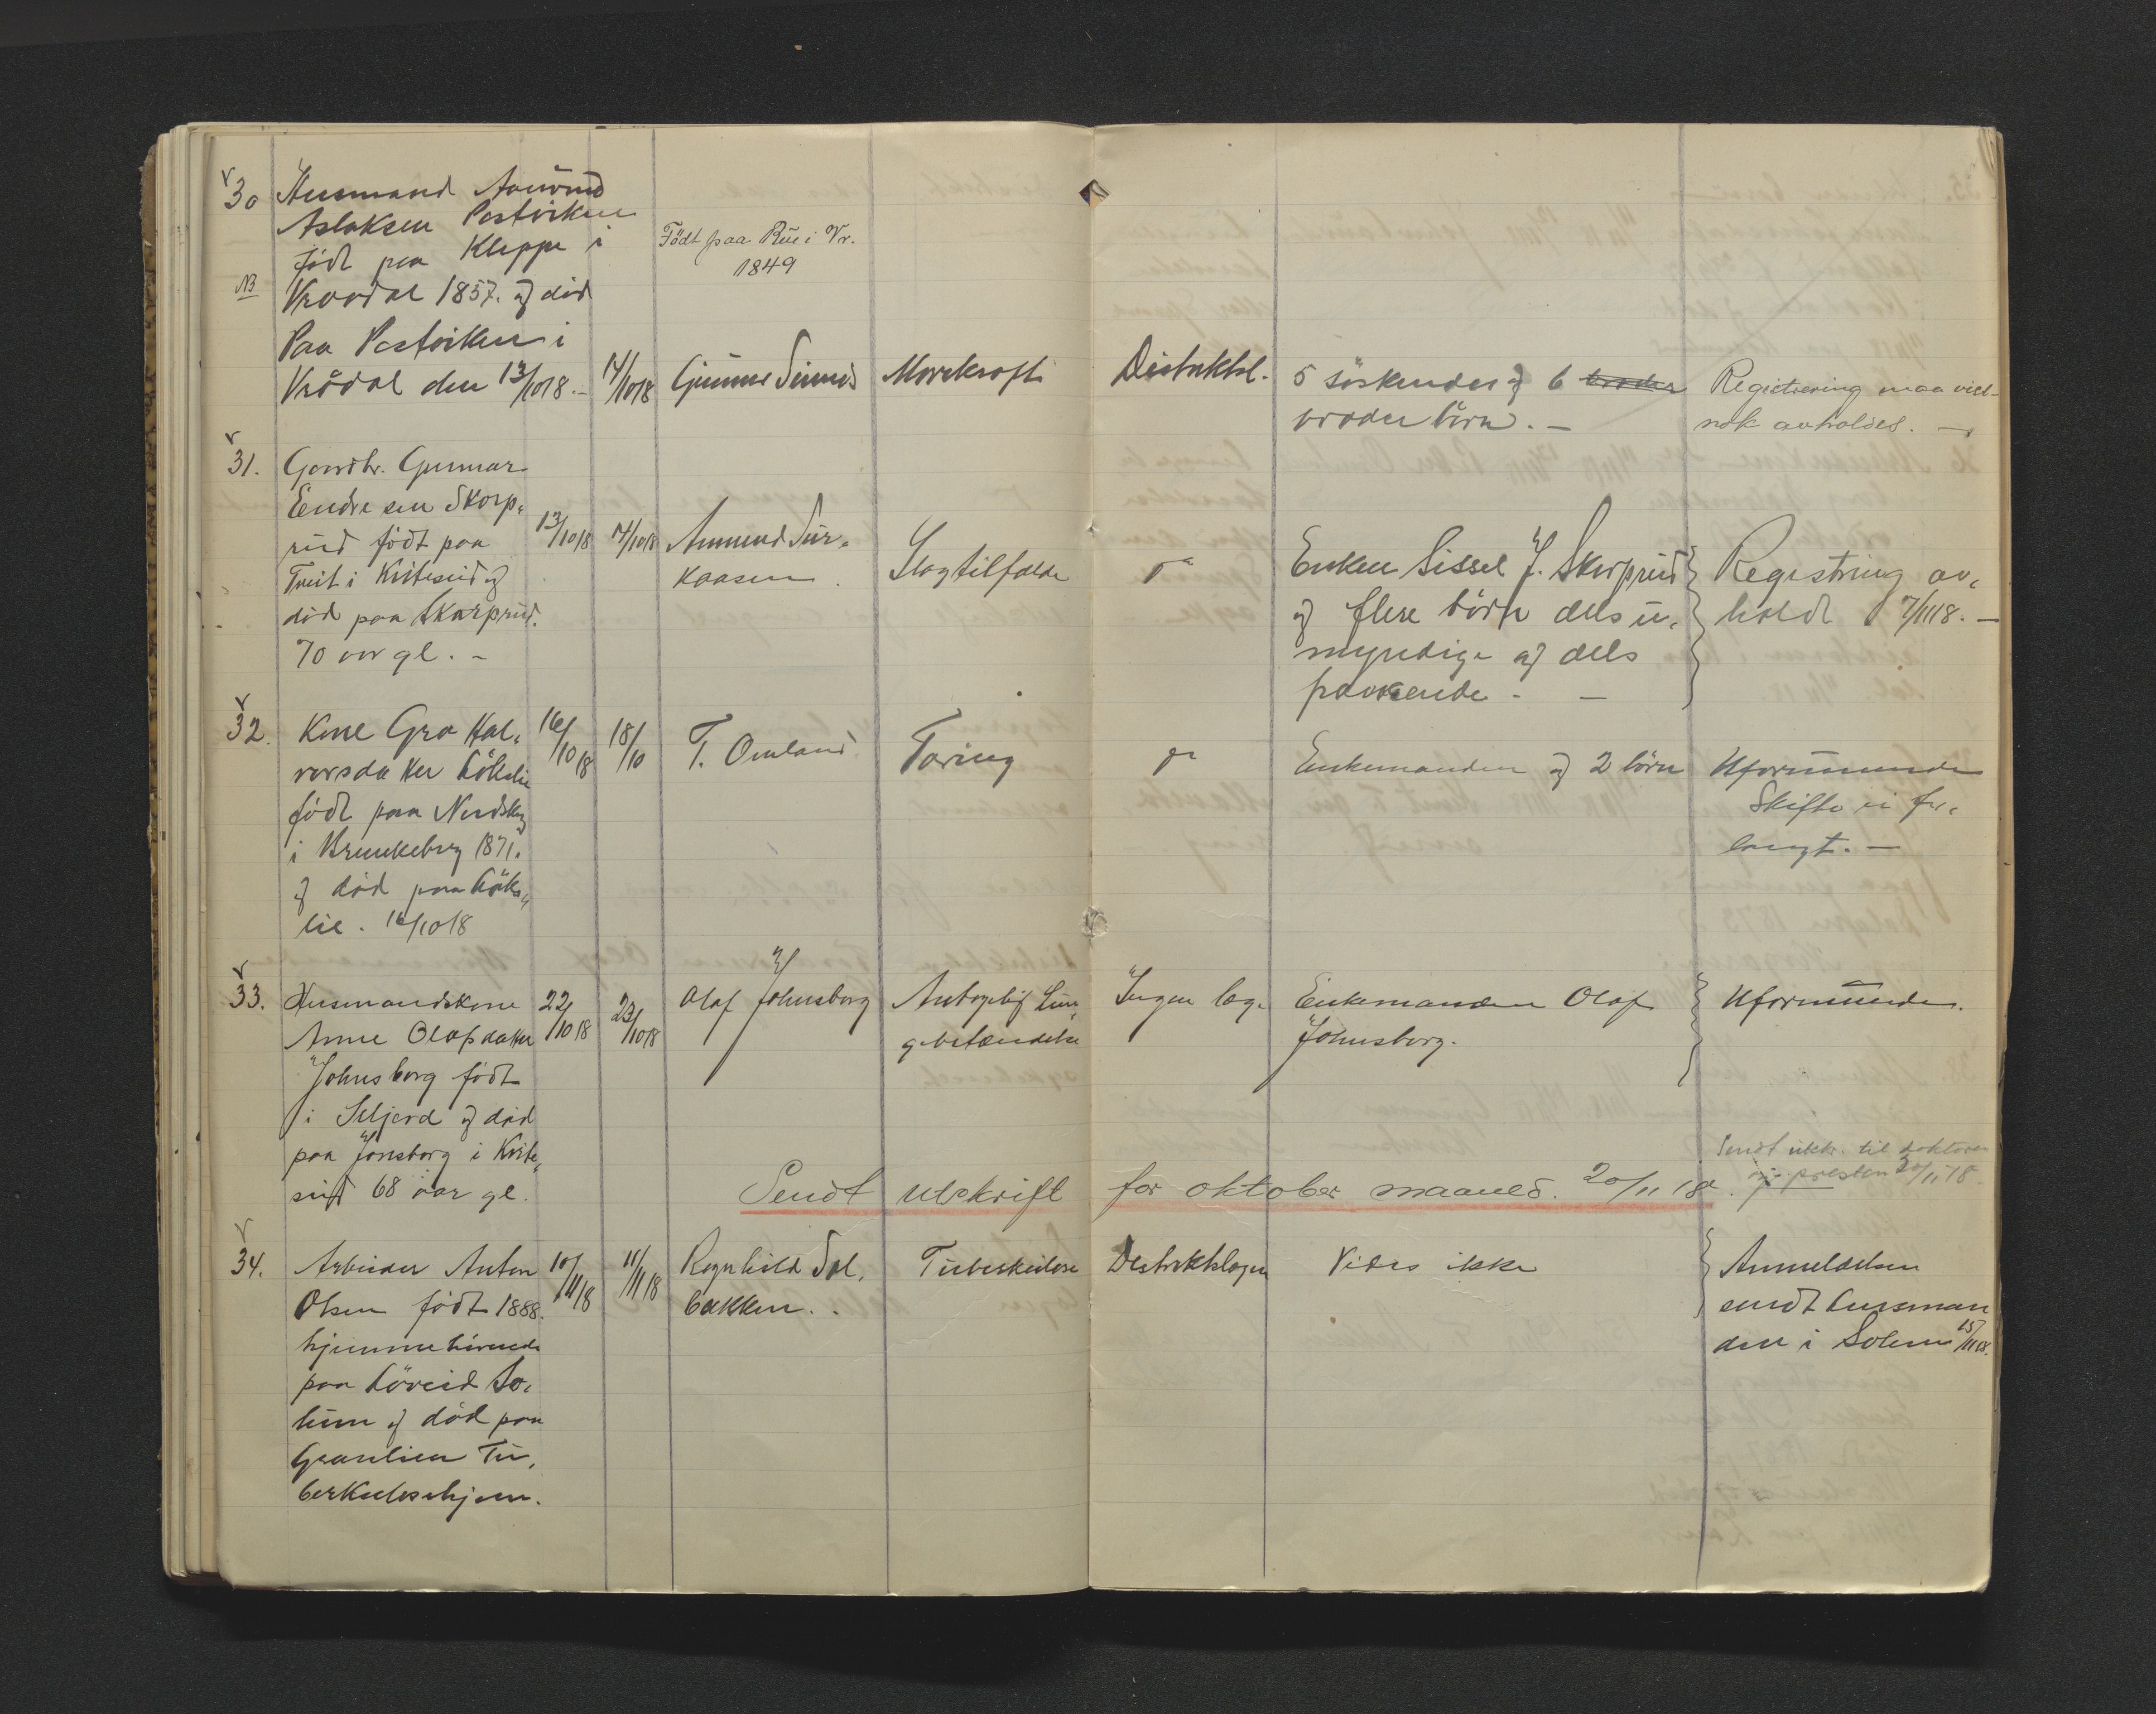 30 Husmand Aanund
Aslaksen Postviken
född paa Kleppe i
NB Vraadal 1857. og död
Paa Postviken i
Vrådal den 13/1018.-
Födt paa Rue i Vr.
1849
14/1018 Gunnar Mavekraft Distriktsl. 5 söskender og 6 broder
broder börn. -
Registrering maa vist-
nok avholdes. -
31. Gaardbr. Gunnar
Endresen Skorp-
rud födt paa
Tveit i Kviteseid og
död paa Skorprud.
70 aar gl. -
13/1018 14/1018 Amund
kaasen. Slagtilfælde do
Enken Sissel J. Skorprud
og flere börn dels u-
myndige og dels
fraværende. -
Registrering av-
holdt 7/1118. -
32. Kone Gro Hal-
vorsdatter
födt paa
i Brunkeberg 1871.
og död paa
lie. 16/1018
16/1018 18/10 T. Omland Tæring do Enkemanden og 2 börn Uformuende
Skifte ei for-
langt. -
33. Husmandskone
Anne Olafsdatter
Johnsborg födt
i Seljord og död
paa Jonsborg i Kvite-
seid 68 aar gl.
22/1018 23/1018 Olaf Johnsborg Antagelig Lun-
gebetændelse Ingen læge Enkemanden Olaf
Johnsborg. Uformuende.
Sendt utskrift for oktober maaned. 20/11 18.
Sendt utskr. til doktoren
og presten 20/11 18.
34. Arbeider Anton
Olsen födt 1888.
hjemmehörende
paa Löveid So-
lum og död paa
Granlien Tu-
berkuloshjem.
10/1118 11/1118 Ragnhild Sol-
bakken. Tuberkulose Distriktslægen Vides ikke
Anmeldelsen
sendt lensman
den i Solum 15/1118.